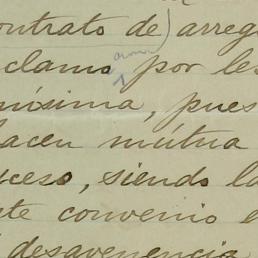 contrato de) arreg
clamo por les
nísima, pues
hacen mútua
ceso, siendo la
te convenio e
desavenencia